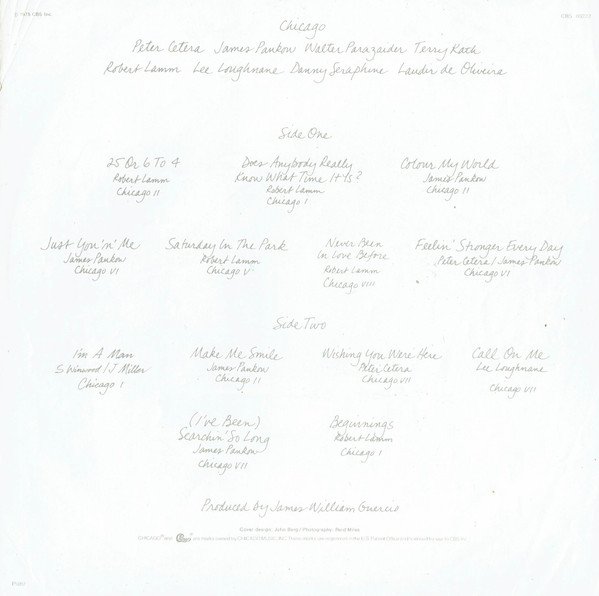 ℗ 1975 CBS Inc.
CBS
Chicago
Peter Cetera James Pankow Walter Parazaider Terry Kath
Robert Lamm Lee Loughnane Danny Seraphine Laudir de Oliveira
Side One
25 Or 6 To 4
Robert Lamm
Chicago II
Does Anybody Really
Know What Time It Is?
Robert Lamm
Chicago I
Colour My World
James Pankow
Chicago II
Just You 'n' Me
James Pankow
Chicago VI
Saturday In The Park
Robert Lamm
Chicago V
Never Been
In Love Before
Robert Lamm
Chicago VIII
Feelin' Stronger Every Day
Peter Cetera / James Pankow
Chicago VI
Side Two
I'm A Man
S. Winwood / J. Miller
Chicago I
Make Me Smile
James Pankow
Chicago II
Wishing You Were Here
Peter Cetera
Chicago VII
Call On Me
Lee Loughnane
Chicago VII
(I've Been)
Searchin' So Long
James Pankow
Chicago VII
Beginnings
Robert Lamm
Chicago I
Produced by James William Guercio
Cover design: John Berg / Photography: Reid Miles